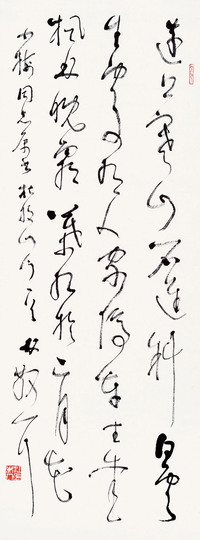 遠上寒山石逕斜白雲
生處有人家停車坐愛
楓林晚霜葉紅於二月花
小同志属書杜牧山行一首林散耳